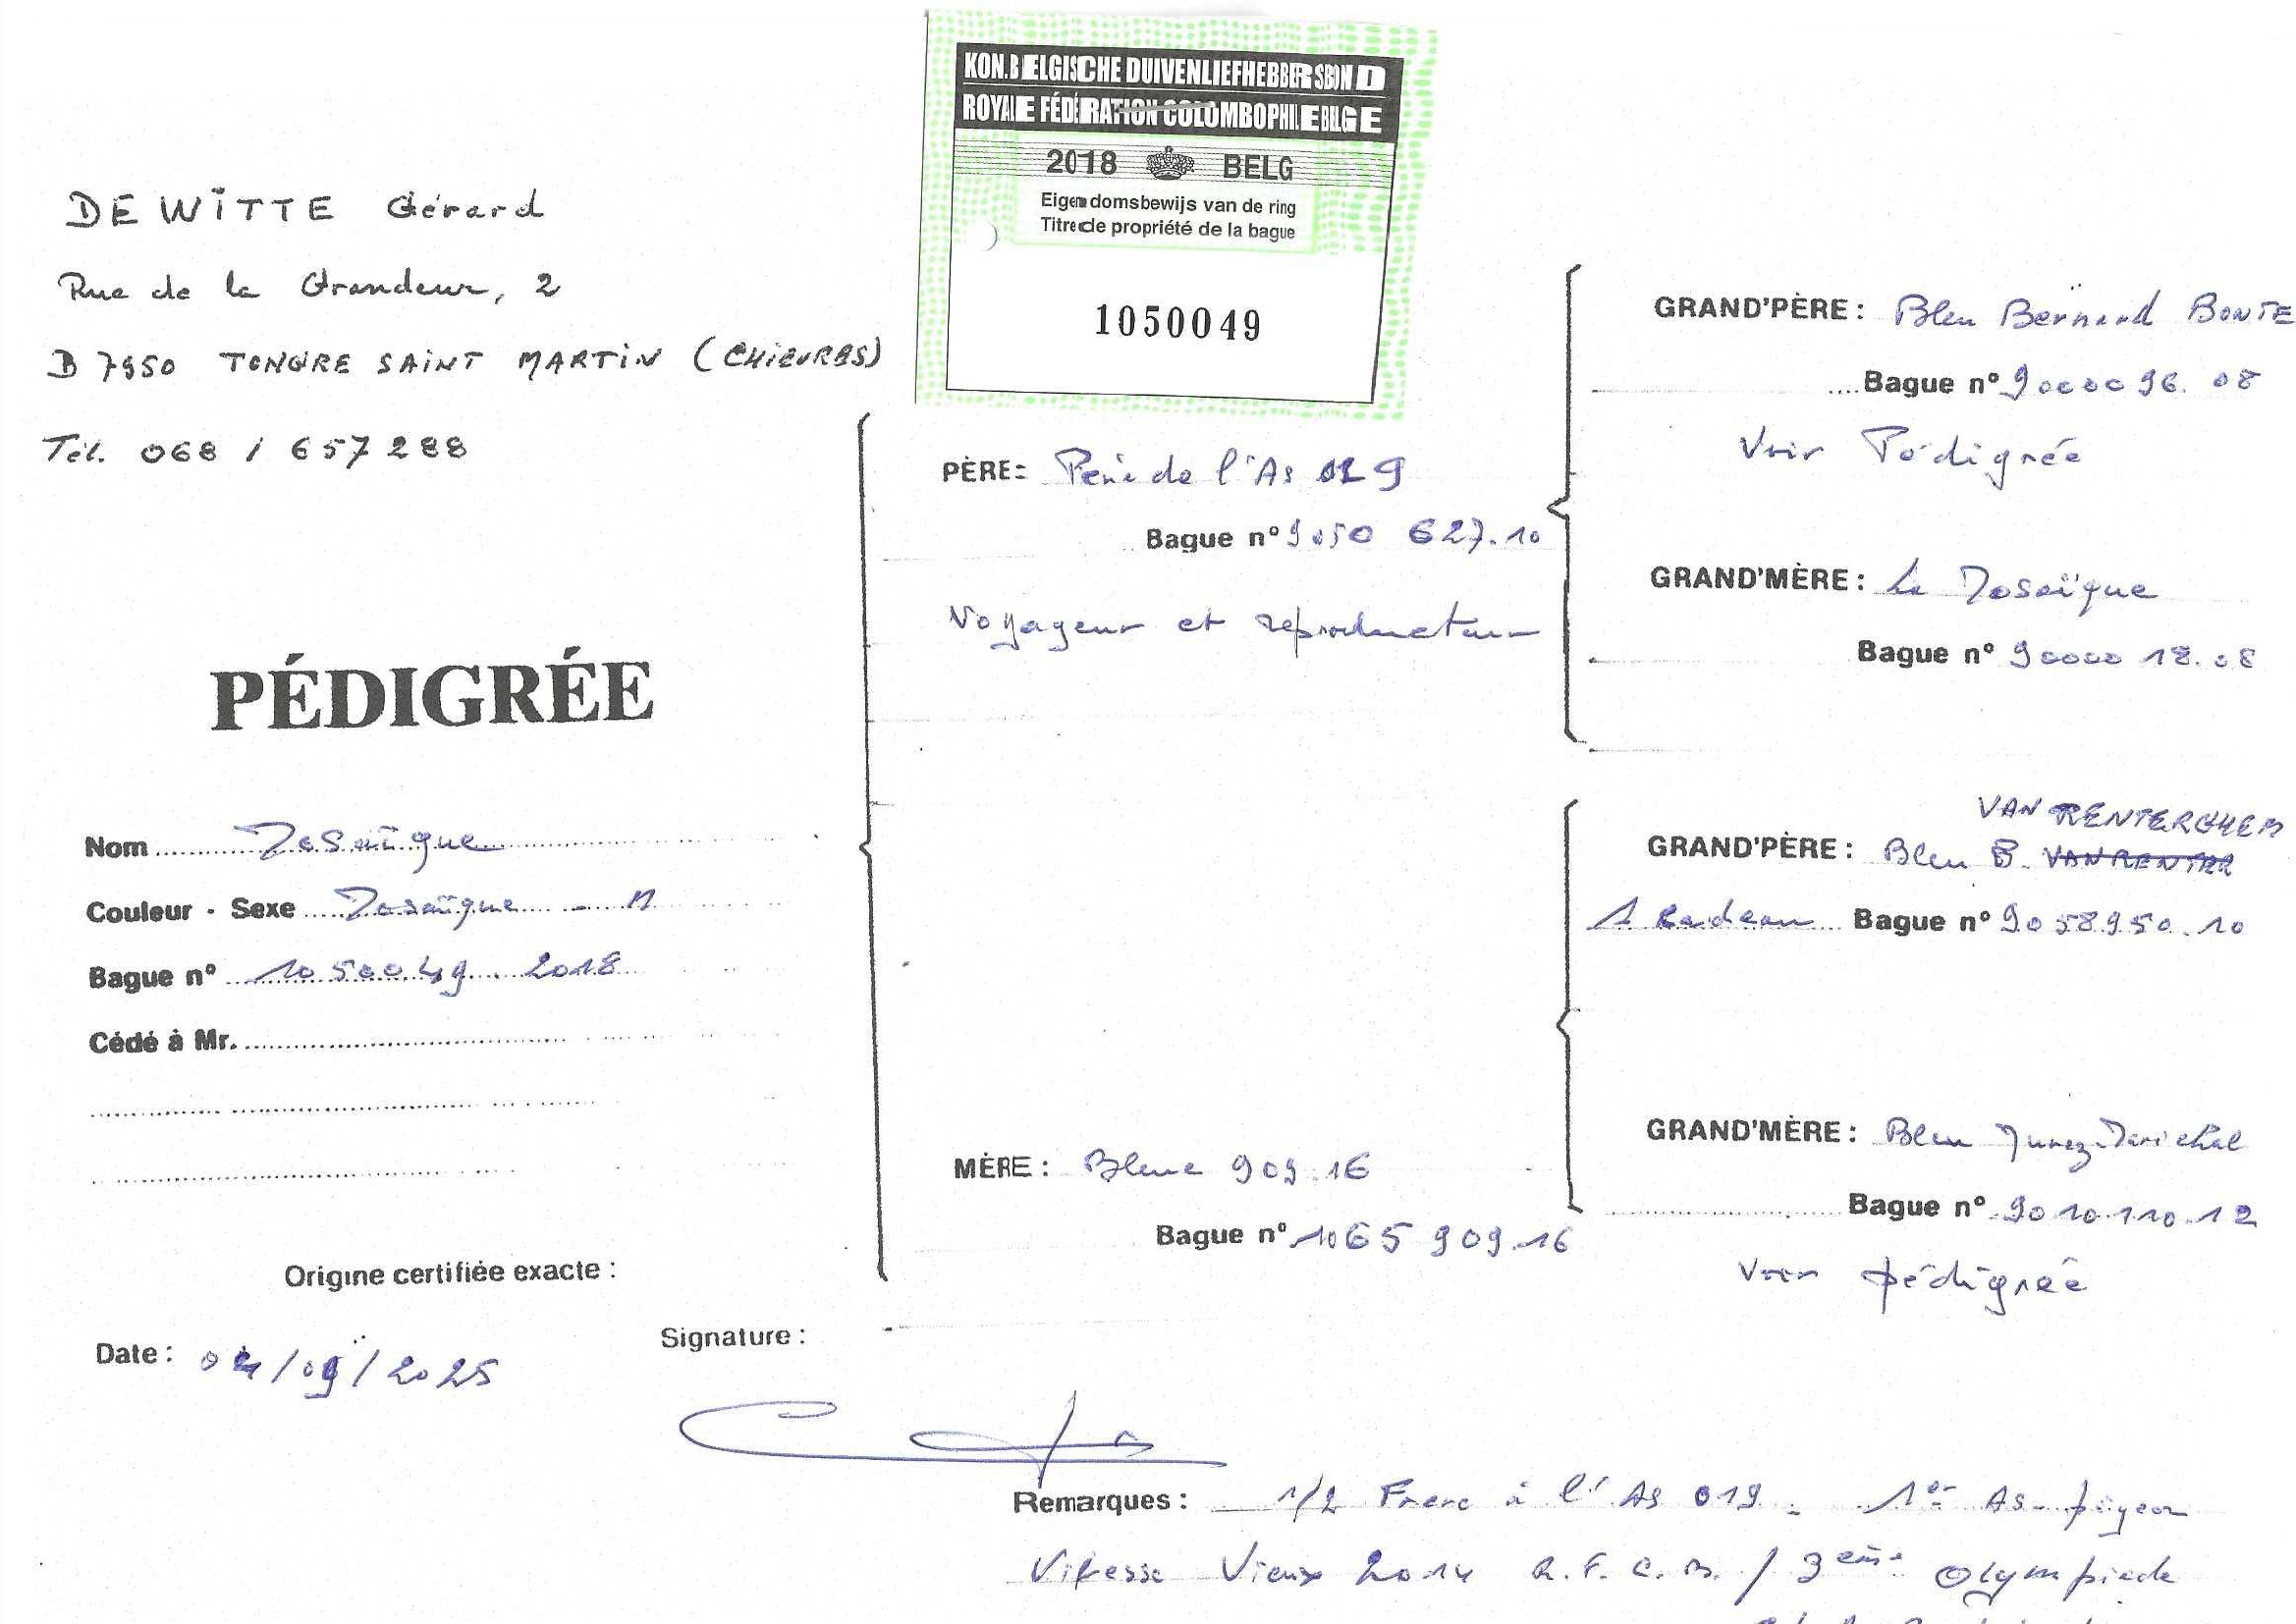 KON.BELGISCHE DUIVENLIEFHEBBERSBOND
ROYALE FÉDÉRATION COLOMBOPHILE BELGE
2018 BELG
Eigendomsbewijs van de ring
Titre de propriété de la bague
1050049
DE WITTE Gérard
Rue de la Grandeur, 2
B 7950 TONGRE SAINT MARTIN (CHIEVRES)
Tél. 068 / 657288
PÉDIGRÉE
Nom Mosaïque
Couleur - Sexe Mosaïque - M
Bague n° 1050049 . 2018
Cédé à Mr.
Origine certifiée exacte :
Date : 04/09/2025
Signature :
PÈRE: Père de l'As 019
Bague n° 9050 627.10
Voyageur et reproducteur
MÈRE : Bleue 909.16
Bague n° 1065 909.16
GRAND'PÈRE : Bleu Bernard BONTE
Bague n° 9000096.08
Voir Pédigrée
GRAND'MÈRE : La Mosaïque
Bague n° 9000018.08
VAN RENTERGHEM
GRAND'PÈRE : Bleu B. VAN RENTER
Bague n° 9058950.10
GRAND'MÈRE : Bleu
Bague n° 9010110.12
Voir pédigrée
Remarques : 1/2 Frère à l'As 019 . 1er As-pigeon
Vitesse Vieux 2014 R.F.C.B. / 3ème Olympiade